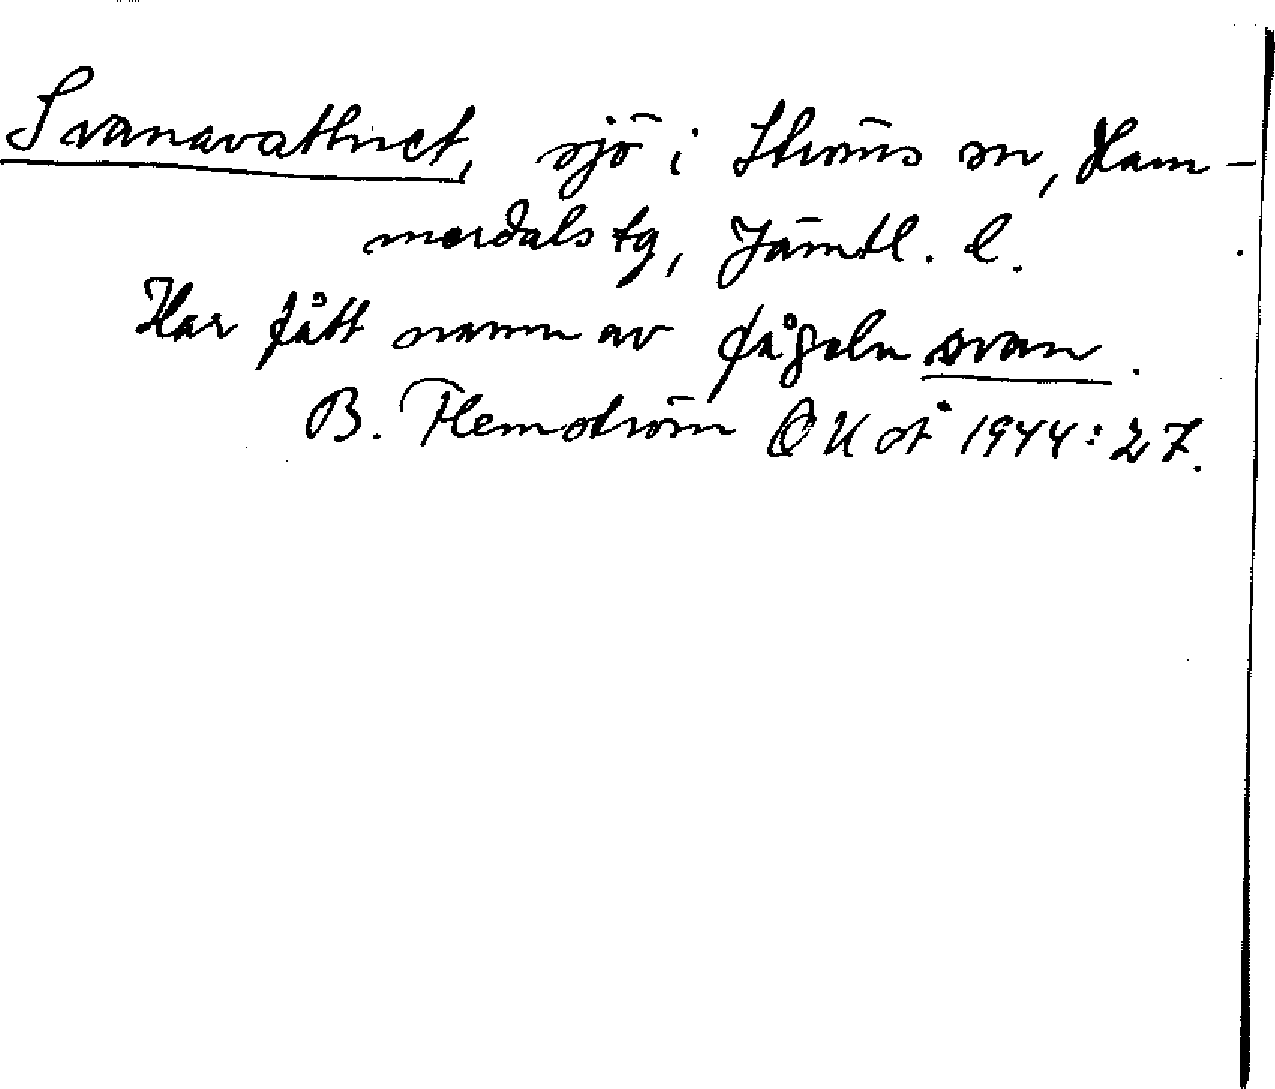 Svanavattnet, sjö i Ströms sn, Ham-
merdals tg, Jämtl. l.
Har fått namn av fågeln svan.
B. Flemström OUÅ 1944: 27.